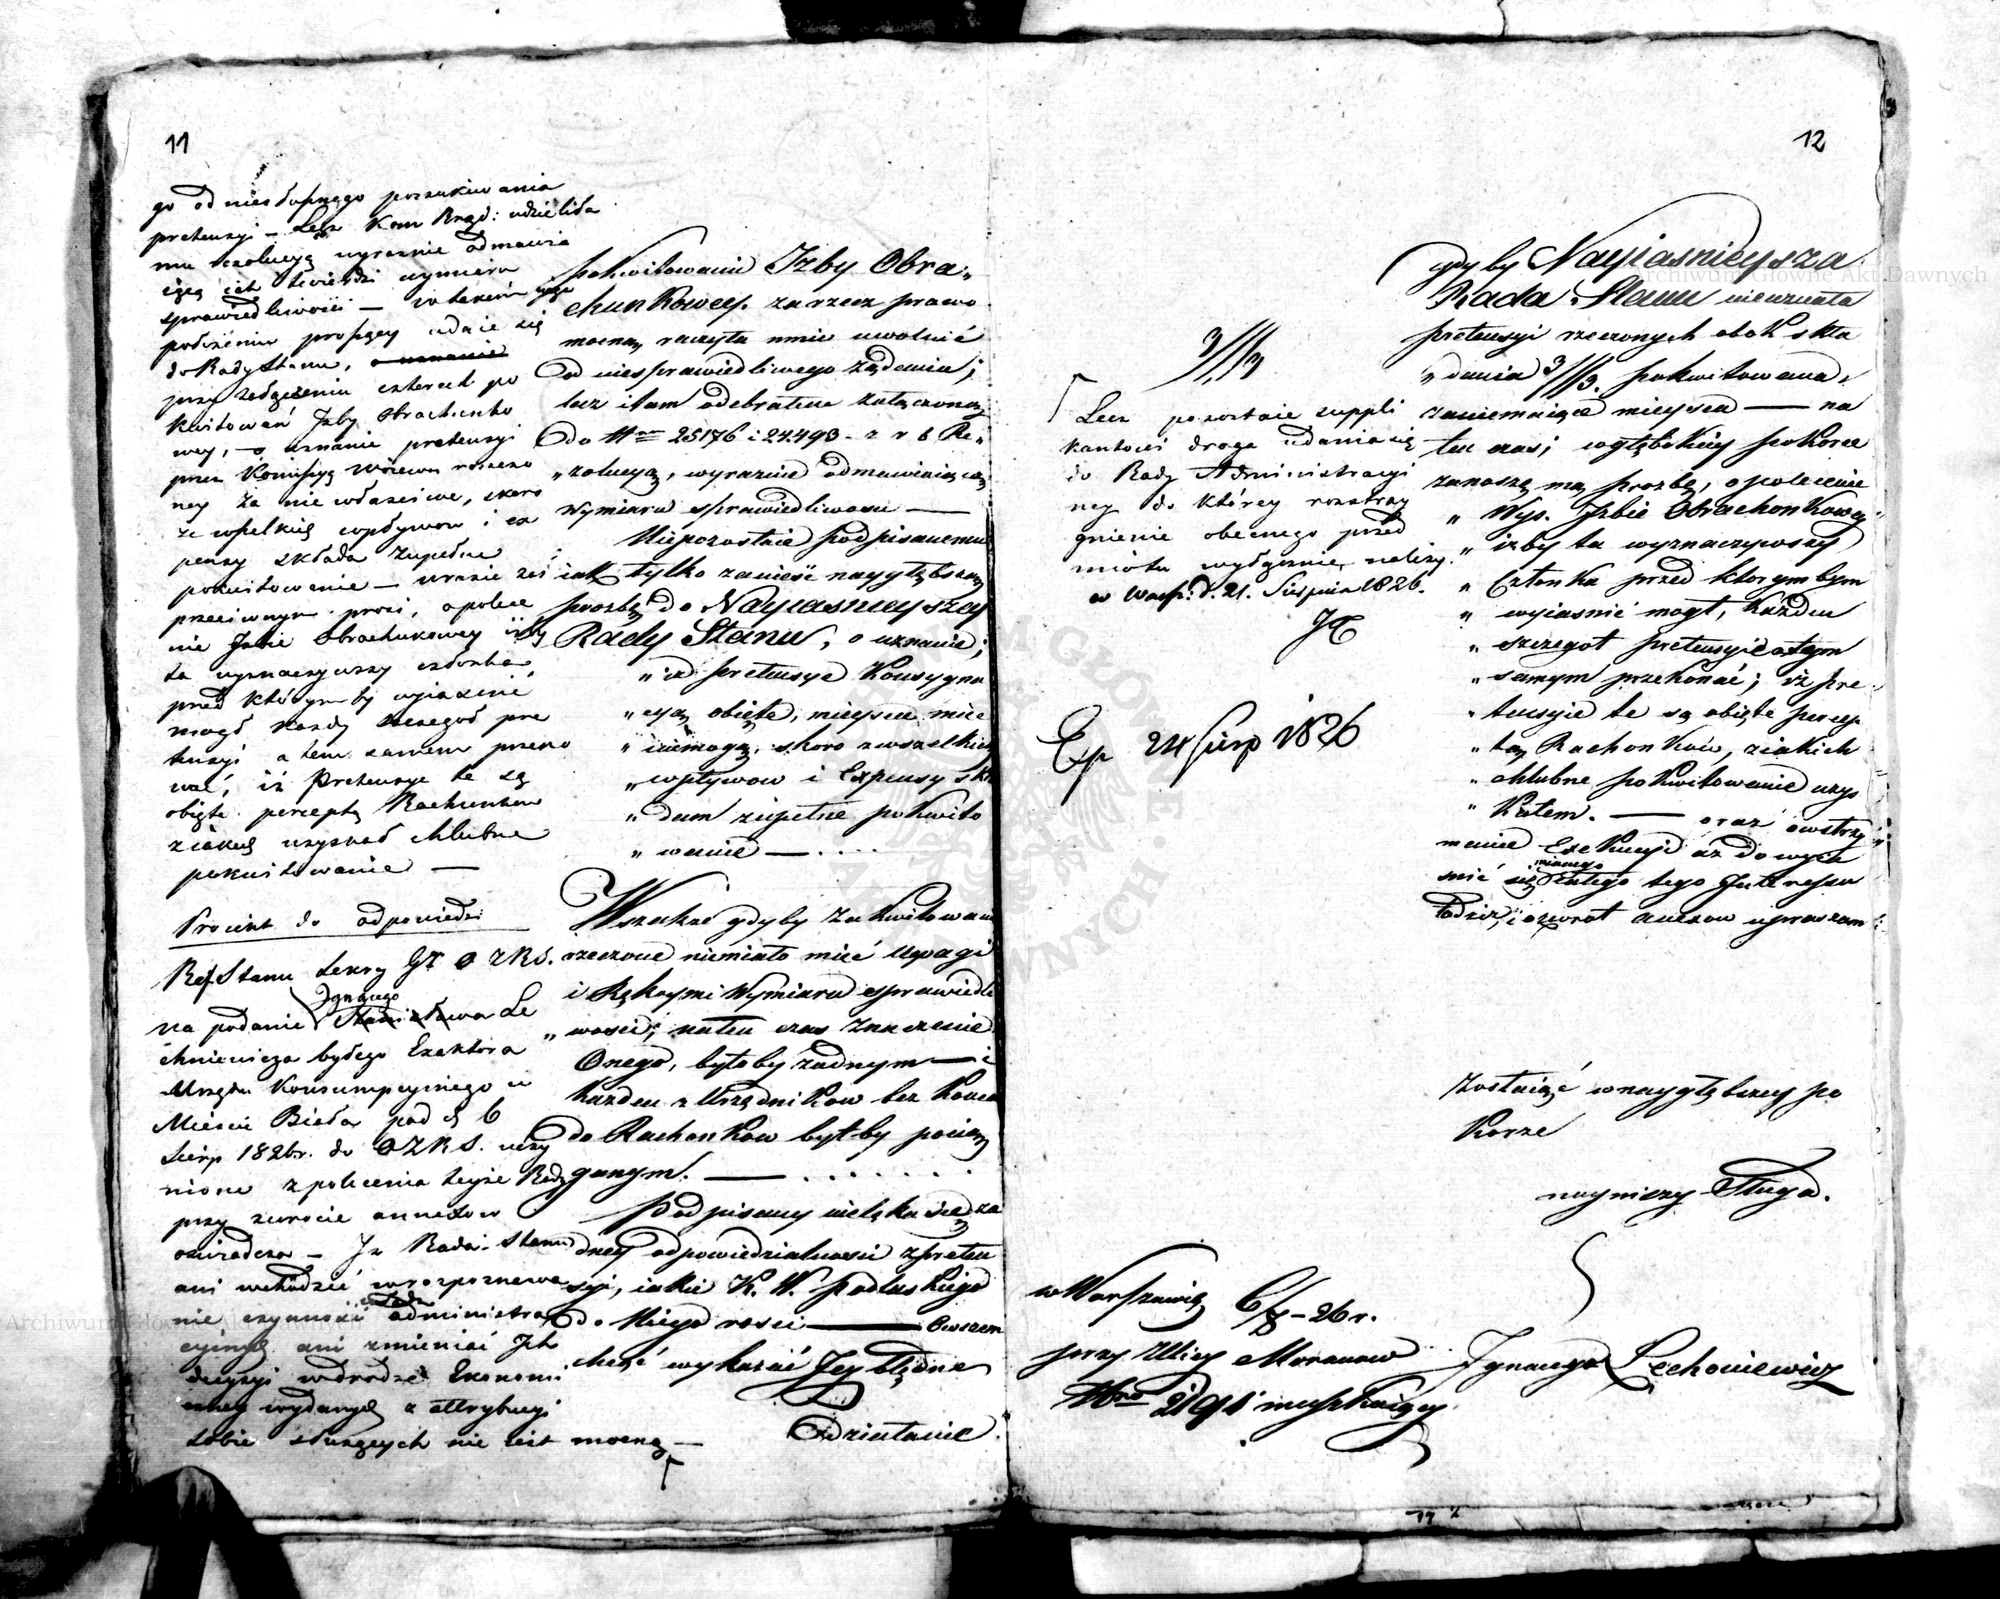 11
go od niesłusznego poszukiwania
pretensyi – Lecz Kom Rząd: udzieliła
mu rezolucyą wyraźnie odmawia
iącą ich twierdzi wymiaru
sprawiedliwości – w takim
położeniu proszący udaie się
do Rady Stanu,
przy załączeniu czterech po
kwitowań Izby Obrachunko
wey, – o uznanie pretensyi
przez Komissyą Woiewó roszczo
ney za nie właściwe, skoro
ze wszelkich wpływów i ex
pensy składa zupełne
pokwitowanie – w razie zaś
przeciwnym prosi, o polece
nie Izbie Obrachunkowey iżby
ta wyznaczywszy członka
przed którymby wyiaśnić
mógł każdy szczegół pre
tensyi a tem samem przeko
nać, iż Pretensye te są
obięte perceptą Rachunków
z iakich uzyskał chlubne
pokwitowanie –
Proiekt do odpowiedzi
Ref. Stanu Sekrz Gł O Z R S.
Ignacego
na podanie Stanisława Le
chniewicza byłego Exaktora
Urzędu Konsumpcyinego w
Mieście Biała pod d. 6
Sierp 1826 r. do O Z R S. uczy
nione z polecenia teyże Rady
przy zwrocie annexów
oświadcza – Iż Rada Stanu
ani wchodzić w rozpoznawa
nie czynności władz administra
cyinych ani zmieniać Ich
decyzyi w drodze Ekonomi
czney wydanych z attrybucyi
sobie służących nie iest mocną –
pokwitowaniu Izby Obra„
chunkowey. za rzecz prawo
mocną, raczyła mnie uwolnić
od niesprawiedliwego żądania;
lecz i tam odebrałem załączoną
do Nrow 25176 i 27.493 – z r b Re„
„zolucyą, wyraźnie odmawiaiącą
wymiaru sprawiedliwości —
Niepozostaie podpisanemu
iak tylko zanieść naygłębszą
prozbę do Nayiaśnieyszey
Rady Stanu, o uznanie;
„iż pretensye Konsygna
„cyą obięte, mieysca mieć
„niemogą, skoro z wszelkich
„wpływow i Expensy skła
„dam zupełne pokwito
„wanie — . . . .
Wszakże gdyby zakwitowani
rzeczone niemiało mieć uwagi
i Rękoymi Wymiaru sprawiedli
„wości; na ten czas znaczenie
Onego, byłoby żadnym — i
Każden z Urzędnikow bez Końca
do Rachonkow byłby pocią
ganym. — . . . . . . .
Podpisany nielęka się żą
dney odpowiedzialności z preten
syi, iakie K. W. Podlaskiego
do Niego rości — Owszem
chcąc wykazać Iey błędne
Działanie.
12
gdyby Nayiaśnieysza
Rada Stanu nieuznała
pretensyi rzeczonych obok skła
„dania 3///3. pokwitowana„
zaniemaiące mieysca — na
ten czas; w głębokiey pokorze
zanoszę mą prozbę, o polecenie
„Wys. Izbie Obrachonkowey
„iżby ta wyznaczywszy
„Członka przed ktorymbym
„wyiaśnić mogł, każden
„szczegoł pretensyi a tym
„samym przekonać; iż pre„
„tensyie te są obięte percep
„tą Rachonków, z iakich
„chlubne pokwitowanie uzys
„kałem. — oraz o wstrzy
manie Exekucyi aż do wyia
śnić się maiącego tego Interessu
tudzież, i o zwrot anexow upraszam
3///3
Lecz pozostaie suppli
kantowi droga udania się
do Rady Administracyi
ney do którey rozstrzy
gnienie obecnego przed
miotu wyłącznie należy.
w Warsz. d. 21. Sierpnia 1826.
Exp 24 Sierp 1826
Zostaiąc w naygłębszey po
korze
nayniższy Sługa.
w Warszawie 6/8 – 26 r.
przy Ulicy Moranow
Nro 2191 mieszkaiący
Ignacy Lechoniewicz
Archiwum Główne Akt Dawnych
Archiwum Główne Akt Dawnych